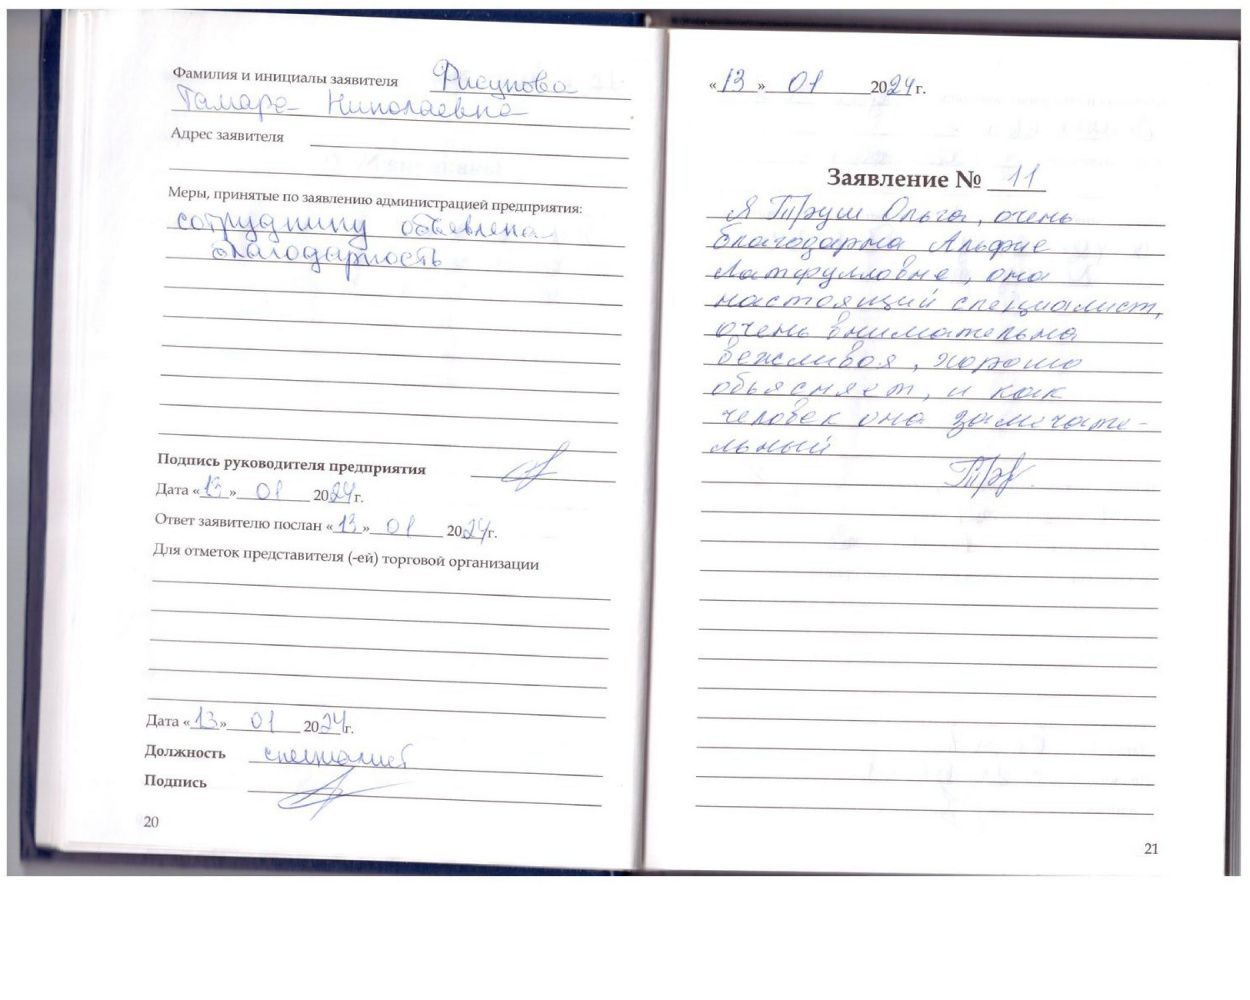 Фамилия и инициалы заявителя Фисунова
Тамара Николаевна
Адрес заявителя
Меры, принятые по заявлению администрацией предприятия:
сотруднику объявлена
благодарность
Подпись руководителя предприятия
Дата «13» 01 2024г.
Ответ заявителю послан «13» 01 2024г.
Для отметок представителя (-ей) торговой организации
Дата «13» 01 2024г.
Должность специалист
Подпись
20
«13» 01 2024г.
Заявление № 11
Я Труш Ольга, очень
благодарна Альфие
Латфулловне, она
настоящий специалист,
очень внимательна
вежливая, хорошо
обьясняет, и как
человек она замечате-
льный
21